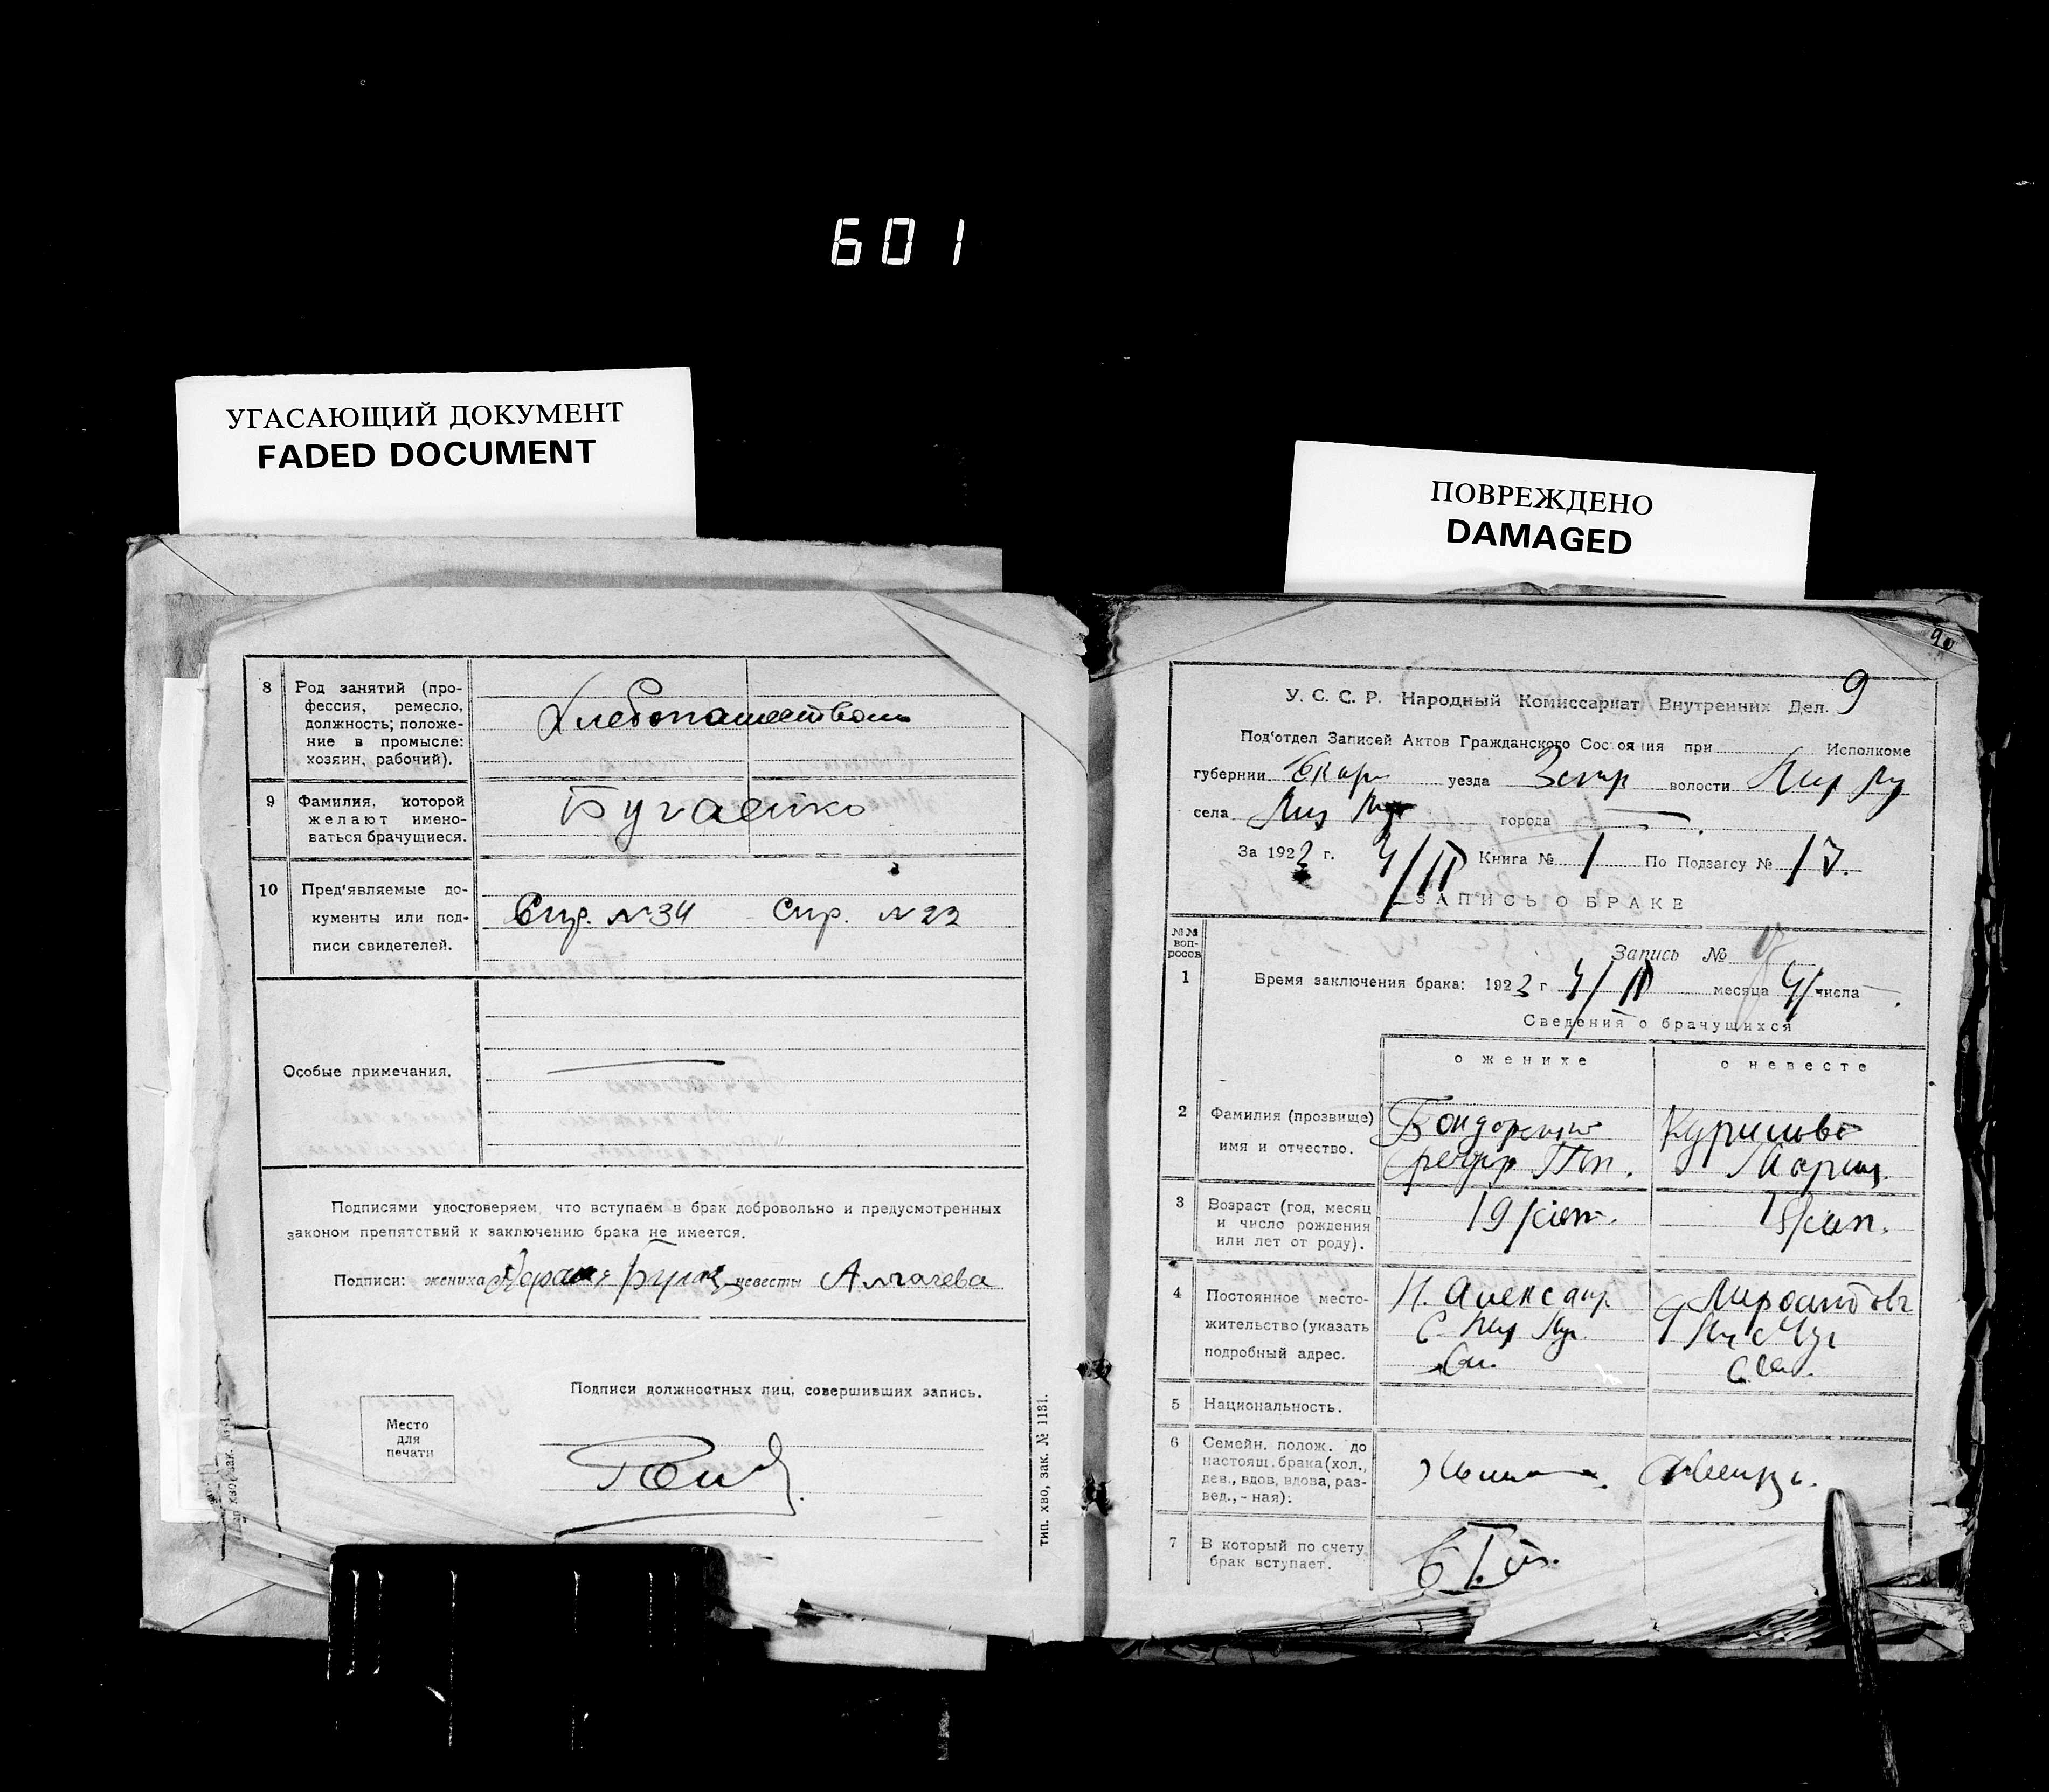 601
УГАСАЮЩИЙ ДОКУМЕНТ
FADED DOCUMENT
ПОВРЕЖДЕНО
DAMAGED
8 Род занятий (про-
фессия, ремесло,
должность; положе-
ние в промысле:
хозяин, рабочий).
Хлебопашеством
9 Фамилия, которой
желают имено-
ваться брачущиеся.
Бугаенко
10 Пред‘являемые до-
кументы или под-
писи свидетелей.
Спр. № 34 Спр. № 22
Особые примечания.
Подписями удостоверяем, что вступаем в брак добровольно и предусмотренных
законом препятствий к заключению брака не имеется.
Подписи: жениха невесты Алгачева
Подписи должностных лиц, совершивших запись.
Место
для
печати
тип. хво, зак. № 1131.
90
9
У. С. С. Р. Народный Комиссариат Внутренних Дел.
Под‘отдел Записей Актов Гражданского Состояния при Исполкоме
губернии Екар уезда волости
села города
За 1923 г. 4/II Книга № 1 По Подзагсу № 17.
ЗАПИСЬ О БРАКЕ
№№
воп-
росов
Запись № 9
1 Время заключения брака: 1923 г. 4/II месяца 4/ числа
Сведения о брачущихся
о женихе о невесте
2 Фамилия (прозвище)
имя и отчество.
Бондоренко Курилова
Мария
3 Возраст (год, месяц
и число рождения
или лет от роду).
19 лет. 18 лет.
4 Постоянное место-
жительство (указать
подробный адрес.
Н. Александр
5 Национальность.
6 Семейн. полож. до
настоящ. брака (хол.,
дев., вдов, вдова, раз-
вед., - ная):
7 В который по счету
брак вступает.
в I